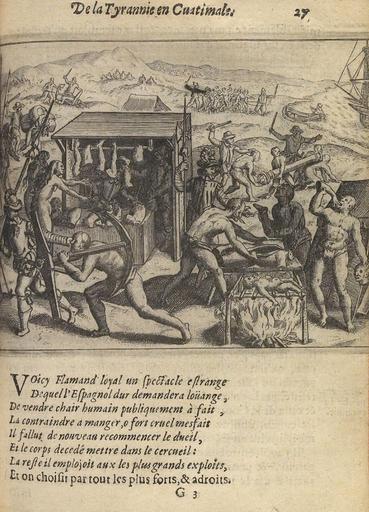 De la Tyrannie en Guatimale.
27
VOicy Flamand loyal un spectacle estrange
Duquel l'Espagnol dur demandera loüange,
De vendre chair humain publiquement à fait,
La contraindre a manger, o fort cruel mesfait
Il fallut de nouveau recommencer le dueil,
Et le corps decedé mettre dans le cercueil:
La reste il emploioit aux les plus grands exploits,
Et on choisit par tout les plus forts, & adroits.
G 3